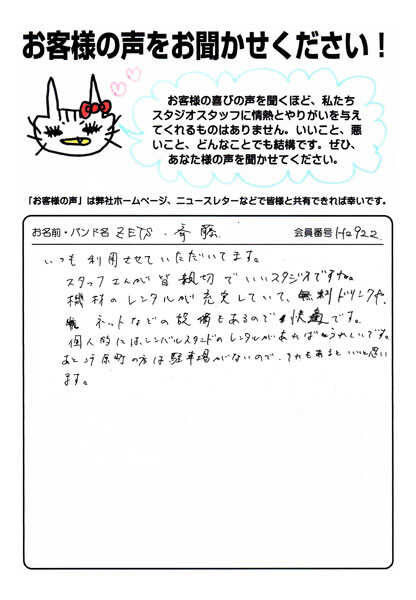 お客様の声をお聞かせください！
お客様の喜びの声を聞くほど、私たち
スタジオスタッフに情熱とやりがいを与え
てくれるものはありません。いいこと、悪
いこと、どんなことでも結構です。ぜひ、
あなた様の声を聞かせてください。
「お客様の声」は弊社ホームページ、ニュースレターなどで皆様と共有できれば幸いです。
お名前・バンド名 ZETS・斉藤 会員番号 H2922
いつも利用させていただいてます。
スタッフさんが皆親切でいいスタジオですね。
機材のレンタルが充実していて、無料ドリンクや、
ネットなどの設備もあるので快適です。
個人的には、シンバルスタンドのレンタルがあればうれしいです。
あと 町の方は駐車場がないので、それもあるといいと思い
ます。